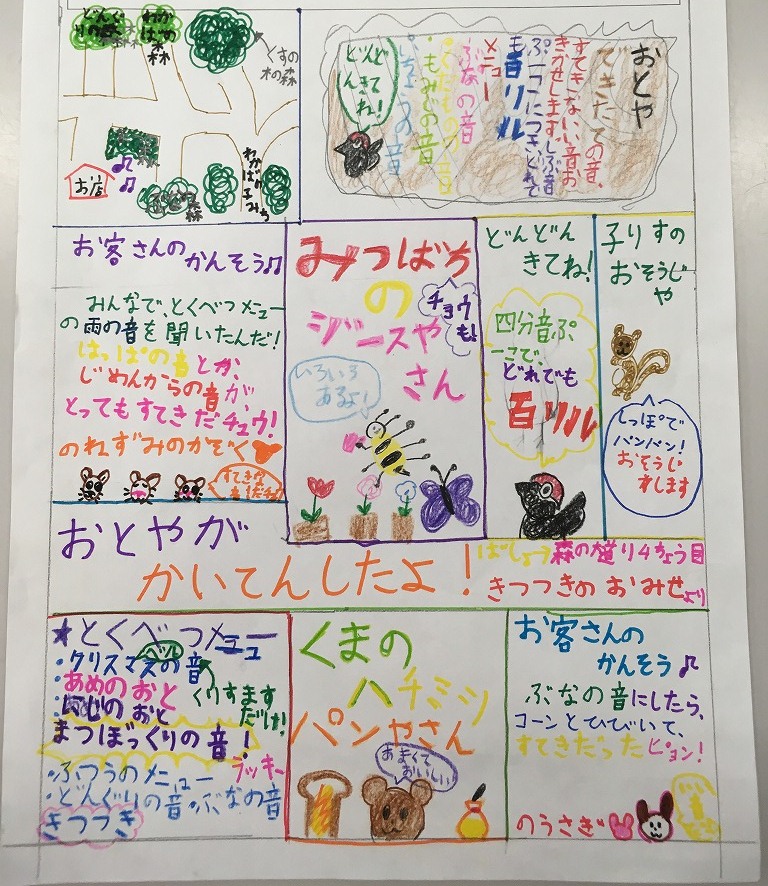 おとや
できたての音、
すてきないい音お
きかせします。しぶ音
ぷ一つにつきどれで
も百リル
メニュー
ぶなの音
・もみじの音
どんどん
きてね!
どんぐ
りの森
わか
ばの
森
くすの
木の森
お店
森
わかばの
こみち
お客さんの
かんそう♫
みんなで、とくべつメニュー
の雨の音を聞いたんだ!
はっぱの音とか、
じめんからの音が、
とってもすてきだチュウ!
のねずみのかぞく
すてきな
音だチュ
みつばち
の
ジースや
さん
チョウ
も!
いろいろ
あるよ!
どんどん
きてね!
四分音ぷ
一こで、
どれでも
百リル
子りすの
おそうじ
や
しっぽで
パンパン!
おそうじ
します
おとやが
かいてんしたよ!
ばしょ→森の通り4ちょう目
きつつきのおみせより
★とくべつメニュー
・クリスマスの音
ベル
くりすます
だけ!
・あめのおと
・にじのおと
まつぼっくりの音!
ラッキー
・ふつうのメニュー
・どんぐりの音・ぶなの音
きつつき
くまの
ハチミツ
パンやさん
あまくて
おいしい
お客さんの
かんそう♫
ぶなの音にしたら、
コーンとひびいて、
すてきだったピョン!
のうさぎ